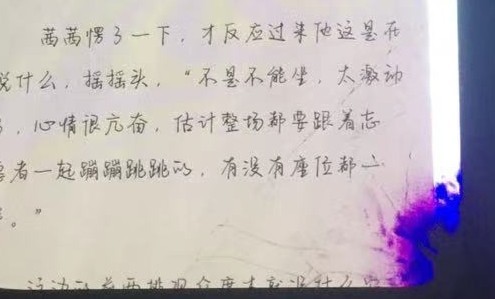 茜茜愣了一下，才反应过来他这是在
说什么，摇摇头，“不是不能坐，太激动
，心情很亢奋，估计整场都要跟着志
者一起蹦蹦跳跳的，有没有座位都一
。”